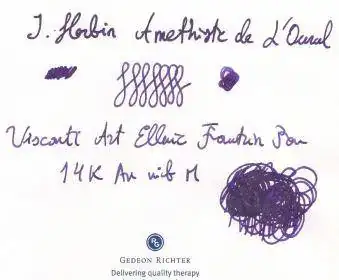 J. Herbin Amethiste de L'Oural
Visconti Art Ellenic Fountain Pen
14K Au nib M
RG
GEDEON RICHTER
Delivering quality therapy